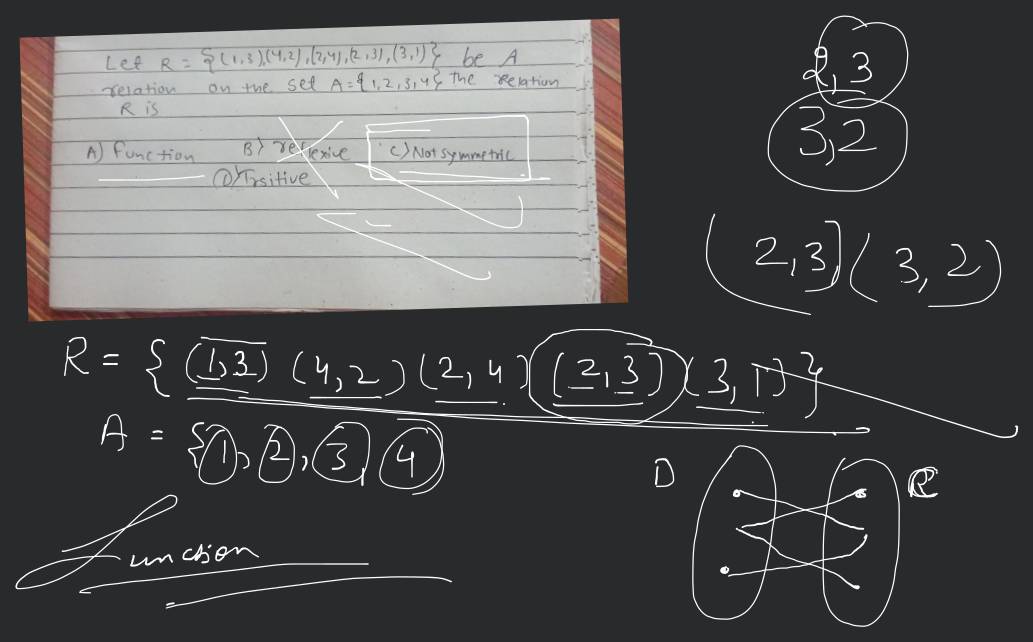 Let R = {(1,3),(4,2),(2,4),(2,3),(3,1)} be A
relation on the set A={1,2,3,4} the relation
R is
A) function B) reflexive C) Not symmetric
D) Trsitive
2,3
3,2
(2,3)(3,2)
R = { (1,3) (4,2) (2,4) (2,3) (3,1) }
A = {1, 2, 3, 4}
D R
function